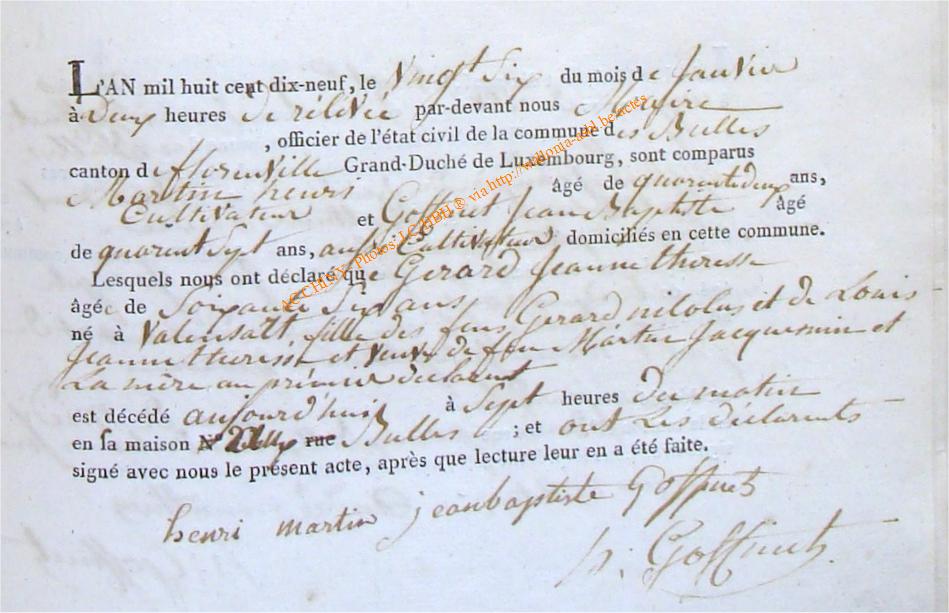 L'AN mil huit cent dix-neuf, le vingt Six du mois de Janvier
à Deux heures de rélévée par-devant nous Mayire
, officier de l'état civil de la commune des Bulles
canton de florenville Grand-Duché de Luxembourg, sont comparus
Martin henri âgé de quarentedeux ans,
Cultivateur et Goffinet Jean Baptiste âgé
de quarent Sept ans, aussi Cultivateur, domiciliés en cette commune.
Lesquels nous ont déclaré que Gerard Jeanne theresse
âgée de Soixante Six ans,
né à Valensart, fille des feus Gerard nicolas et de Louis
Jeanne theresse et veuve de feu Martin Jacquemin et
La mère au prémier déclarent
est décédé aujourd'huit à Sept heures du matin
en sa maison N° rue Bulles ; et ont Les déclarents
signé avec nous le présent acte, après que lecture leur en a été faite.
henri martin jeanbaptiste Goffinet
Goffinet
ARCHIVES- Photos: LCHBH® via http://wallonia-asbl.be/actes